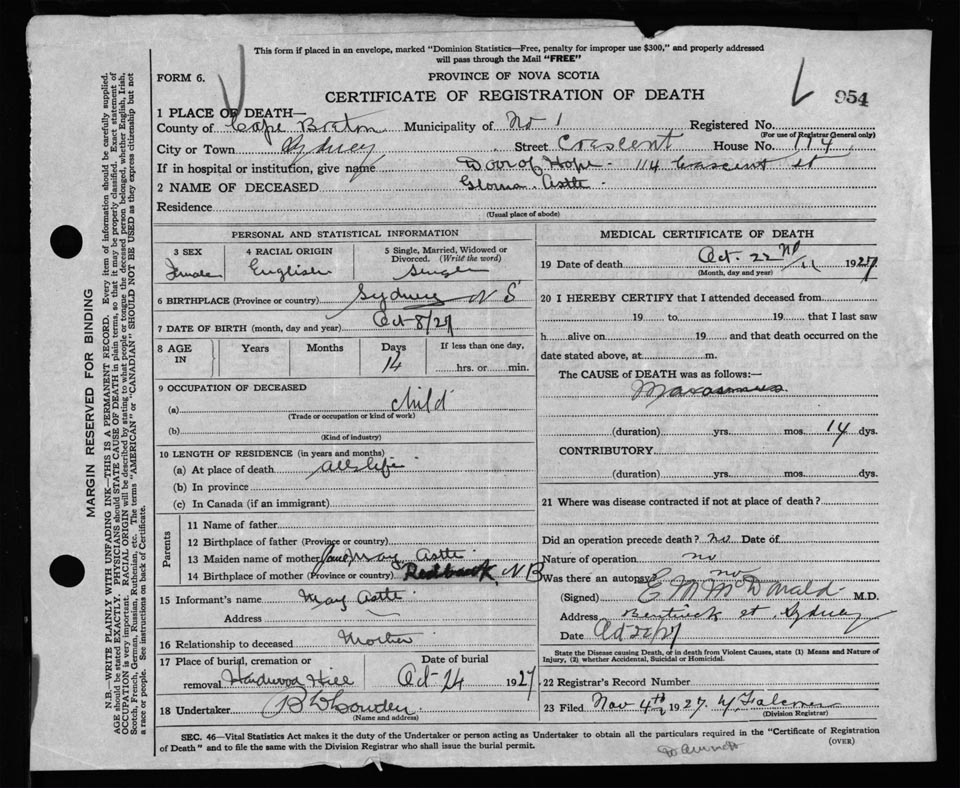 This form if placed in an envelope, marked "Dominion Statistics—Free, penalty for improper use $300," and properly addressed
will pass through the Mail "FREE"
FORM 6.
PROVINCE OF NOVA SCOTIA
CERTIFICATE OF REGISTRATION OF DEATH
954
1 PLACE OF DEATH—
County of Cape Breton Municipality of No 1 Registered No.
(For use of Registrar General only)
City or Town Sydney Street Crescent House No. 114
If in hospital or institution, give name Door of Hope - 114 Crescent st
2 NAME OF DECEASED Astle
Residence
(Usual place of abode)
PERSONAL AND STATISTICAL INFORMATION
3 SEX 4 RACIAL ORIGIN 5 Single, Married, Widowed or
Divorced. (Write the word)
Female English Single
6 BIRTHPLACE (Province or country) Sydney N S
7 DATE OF BIRTH (month, day and year) Oct 8/27
8 AGE IN Years Months Days If less than one day,
14 hrs. or min.
9 OCCUPATION OF DECEASED
(a) child
(Trade or occupation or kind of work)
(b)
(Kind of industry)
10 LENGTH OF RESIDENCE (in years and months)
(a) At place of death all life
(b) In province
(c) In Canada (if an immigrant)
Parents
11 Name of father
12 Birthplace of father (Province or country)
13 Maiden name of mother Jane May Astle
14 Birthplace of mother (Province or country) Redbank, N B
15 Informant's name May Astle
Address
16 Relationship to deceased Mother
17 Place of burial, cremation or Date of burial
removal Hardwood Hill Oct-24 1927
18 Undertaker
(Name and address)
MEDICAL CERTIFICATE OF DEATH
19 Date of death Oct. 22nd 1927
(Month, day and year)
20 I HEREBY CERTIFY that I attended deceased from
19 to 19 that I last saw
h alive on 19 and that death occurred on the
date stated above, at m.
The CAUSE of DEATH was as follows:—
Marasmus
(duration) yrs. mos. 14 dys.
CONTRIBUTORY
(duration) yrs. mos. dys.
21 Where was disease contracted if not at place of death?
Did an operation precede death? No Date of
Nature of operation no
Was there an autopsy no
(Signed) E M McDonald M.D.
Address Bentinck st, Sydney
Date Oct 22/27
State the Disease causing Death, or in death from Violent Causes, state (1) Means and Nature of
Injury, (2) whether Accidental, Suicidal or Homicidal.
22 Registrar's Record Number
23 Filed Nov 4th 1927.
(Division Registrar)
SEC. 46—Vital Statistics Act makes it the duty of the Undertaker or person acting as Undertaker to obtain all the particulars required in the "Certificate of Registration
of Death" and to file the same with the Division Registrar who shall issue the burial permit.
(OVER)
MARGIN RESERVED FOR BINDING
N.B.—WRITE PLAINLY WITH UNFADING INK—THIS IS A PERMANENT RECORD. Every item of information should be carefully supplied.
AGE should be stated EXACTLY. PHYSICIANS should STATE CAUSE OF DEATH in plain terms, so that it may be properly classified. Exact statement of
OCCUPATION is very important. RACIAL ORIGIN will be described by stating to what people or tongue the deceased person belonged, whether English, Irish,
Scotch, French, German, Russian, Ruthenian, etc. The terms "AMERICAN" or "CANADIAN" SHOULD NOT BE USED as they express citizenship but not
a race or people. See instructions on back of Certificate.